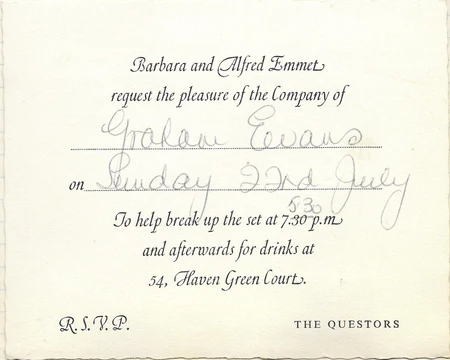 Barbara and Alfred Emmet
request the pleasure of the Company of
Graham Eevans
on Sunday 22nd July
5.30
To help break up the set at 7.30 p.m
and afterwards for drinks at
54, Haven Green Court.
R.S.V.P. THE QUESTORS